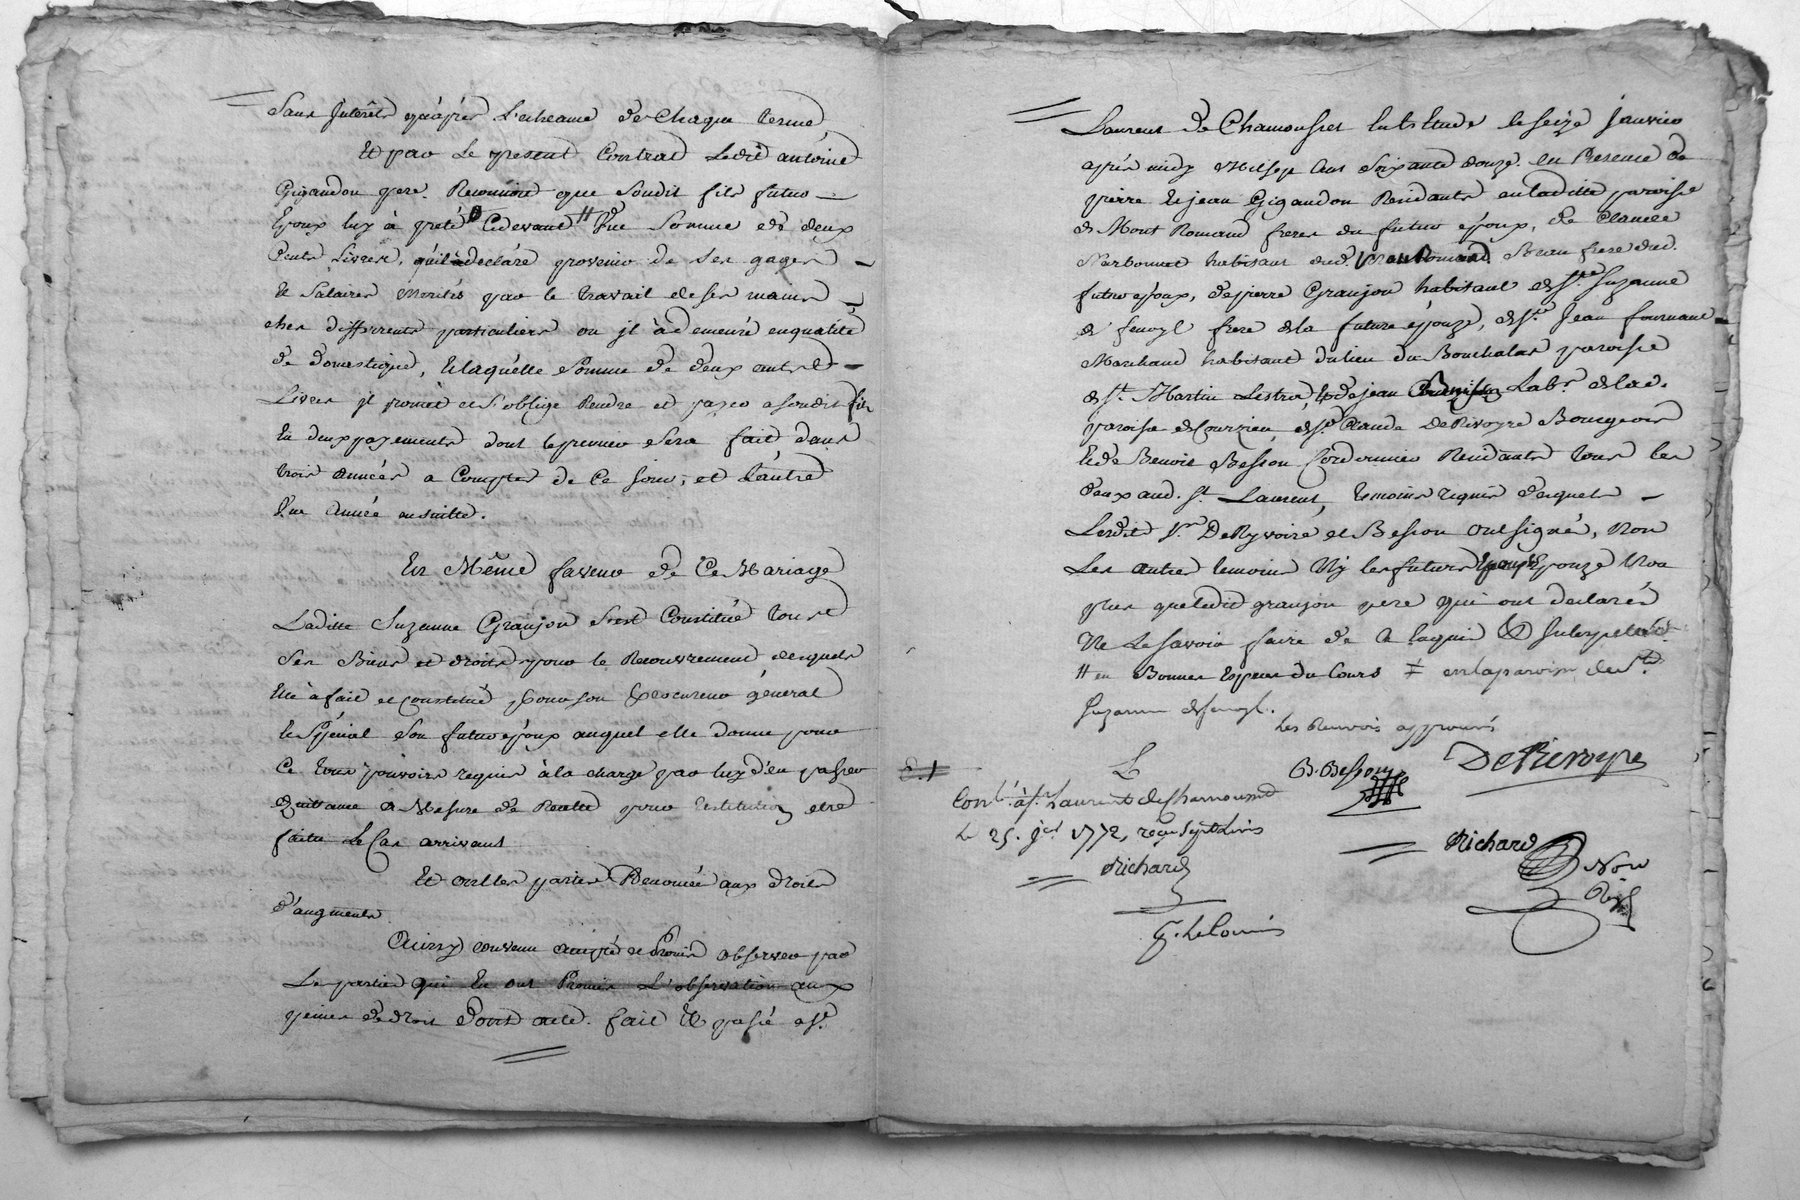 Sans Jnterêts qu'après L'echeance de Chaque terme
Et par Le present Contrat Ledit antoine
Gigandon pere Reconnoit que Soudit fils futur
Epoux luy à preté Cidevant // Une Somme de deux
Cents Livres, qu'il à declaré provenir de Ses gages
Et Salaires mérités par le travail de ses mains
ches differents particuliers ou jl à demeuré enqualité
de domestique, Et laquelle Somme de deux cents
Livres jl promet et S'oblige Rendre et payer a Soudit fils
En deux payements dont le premier Sera fait dans
trois années a Compter de Ce jour, et L'autre
Une Année ensuitte.
En Même faveur de Ce Mariage
Laditte Suzanne Granjon S'est Constitué tous
Ses Biens et droits pour le Recouvrement desquels
Elle à fait et constitué pour son procureur général
et Spécial Son futur époux auquel elle donne pour
Ce tous pouvoirs requis à la charge par luy d'en passer
quittance a Mesure de Recette pour restitution être
faitte Le Cas arrivant
Et ont les parties Renoncé aux droits
d'augments
Ainsy convenu accepté et Promis observer par
Les parties qui En ont Promis L'observation aux
peines de droit Dont acte. fait Et passé a St.
Laurent de Chamousset Etude le seize janvier
après midy Mil sept cent Soixante douze. En Presence de
pierre Et jean Gigandon Residants en laditte paroisse
de Mont Romand freres du futur époux, de Claude
Narbonnet habitant aud. Mont Romand. Beau frere dud.
futur époux, de pierre Granjon habitant de Ste. Suzanne
de frere de la future épouze, de Sr. Jean fournand
Marchand habitant du lieu du Bouchalas paroisse
de St. Martin Lestra, Et de jean Labr. de lad.
paroise de Courzieu, de Sr. Claude DeRivoyre Bourgeois
Et de Benoit Besson Cordonnier Residants tous les
deux aud. St. Laurent, temoins requis desquels
Lesdits Sr. DeRyvoire et Besson ont signé, Non
Les autres temoins Ny les futurs Epoux Epouze Non
plus que ledit granjon pere qui ont declarés
Ne Le Savoir faire de Ce Enquis Et Interpellés
// en Bonnes Especes du Cours ‡ en la paroisse de Ste.
Suzanne
Les Renvois approuvés
B. Besson DeRivoyre
Contl. à St. Laurent de Chamousset
Le 25. 1772, reçu Sept Livres
Richard
Richard Nore
Roy.